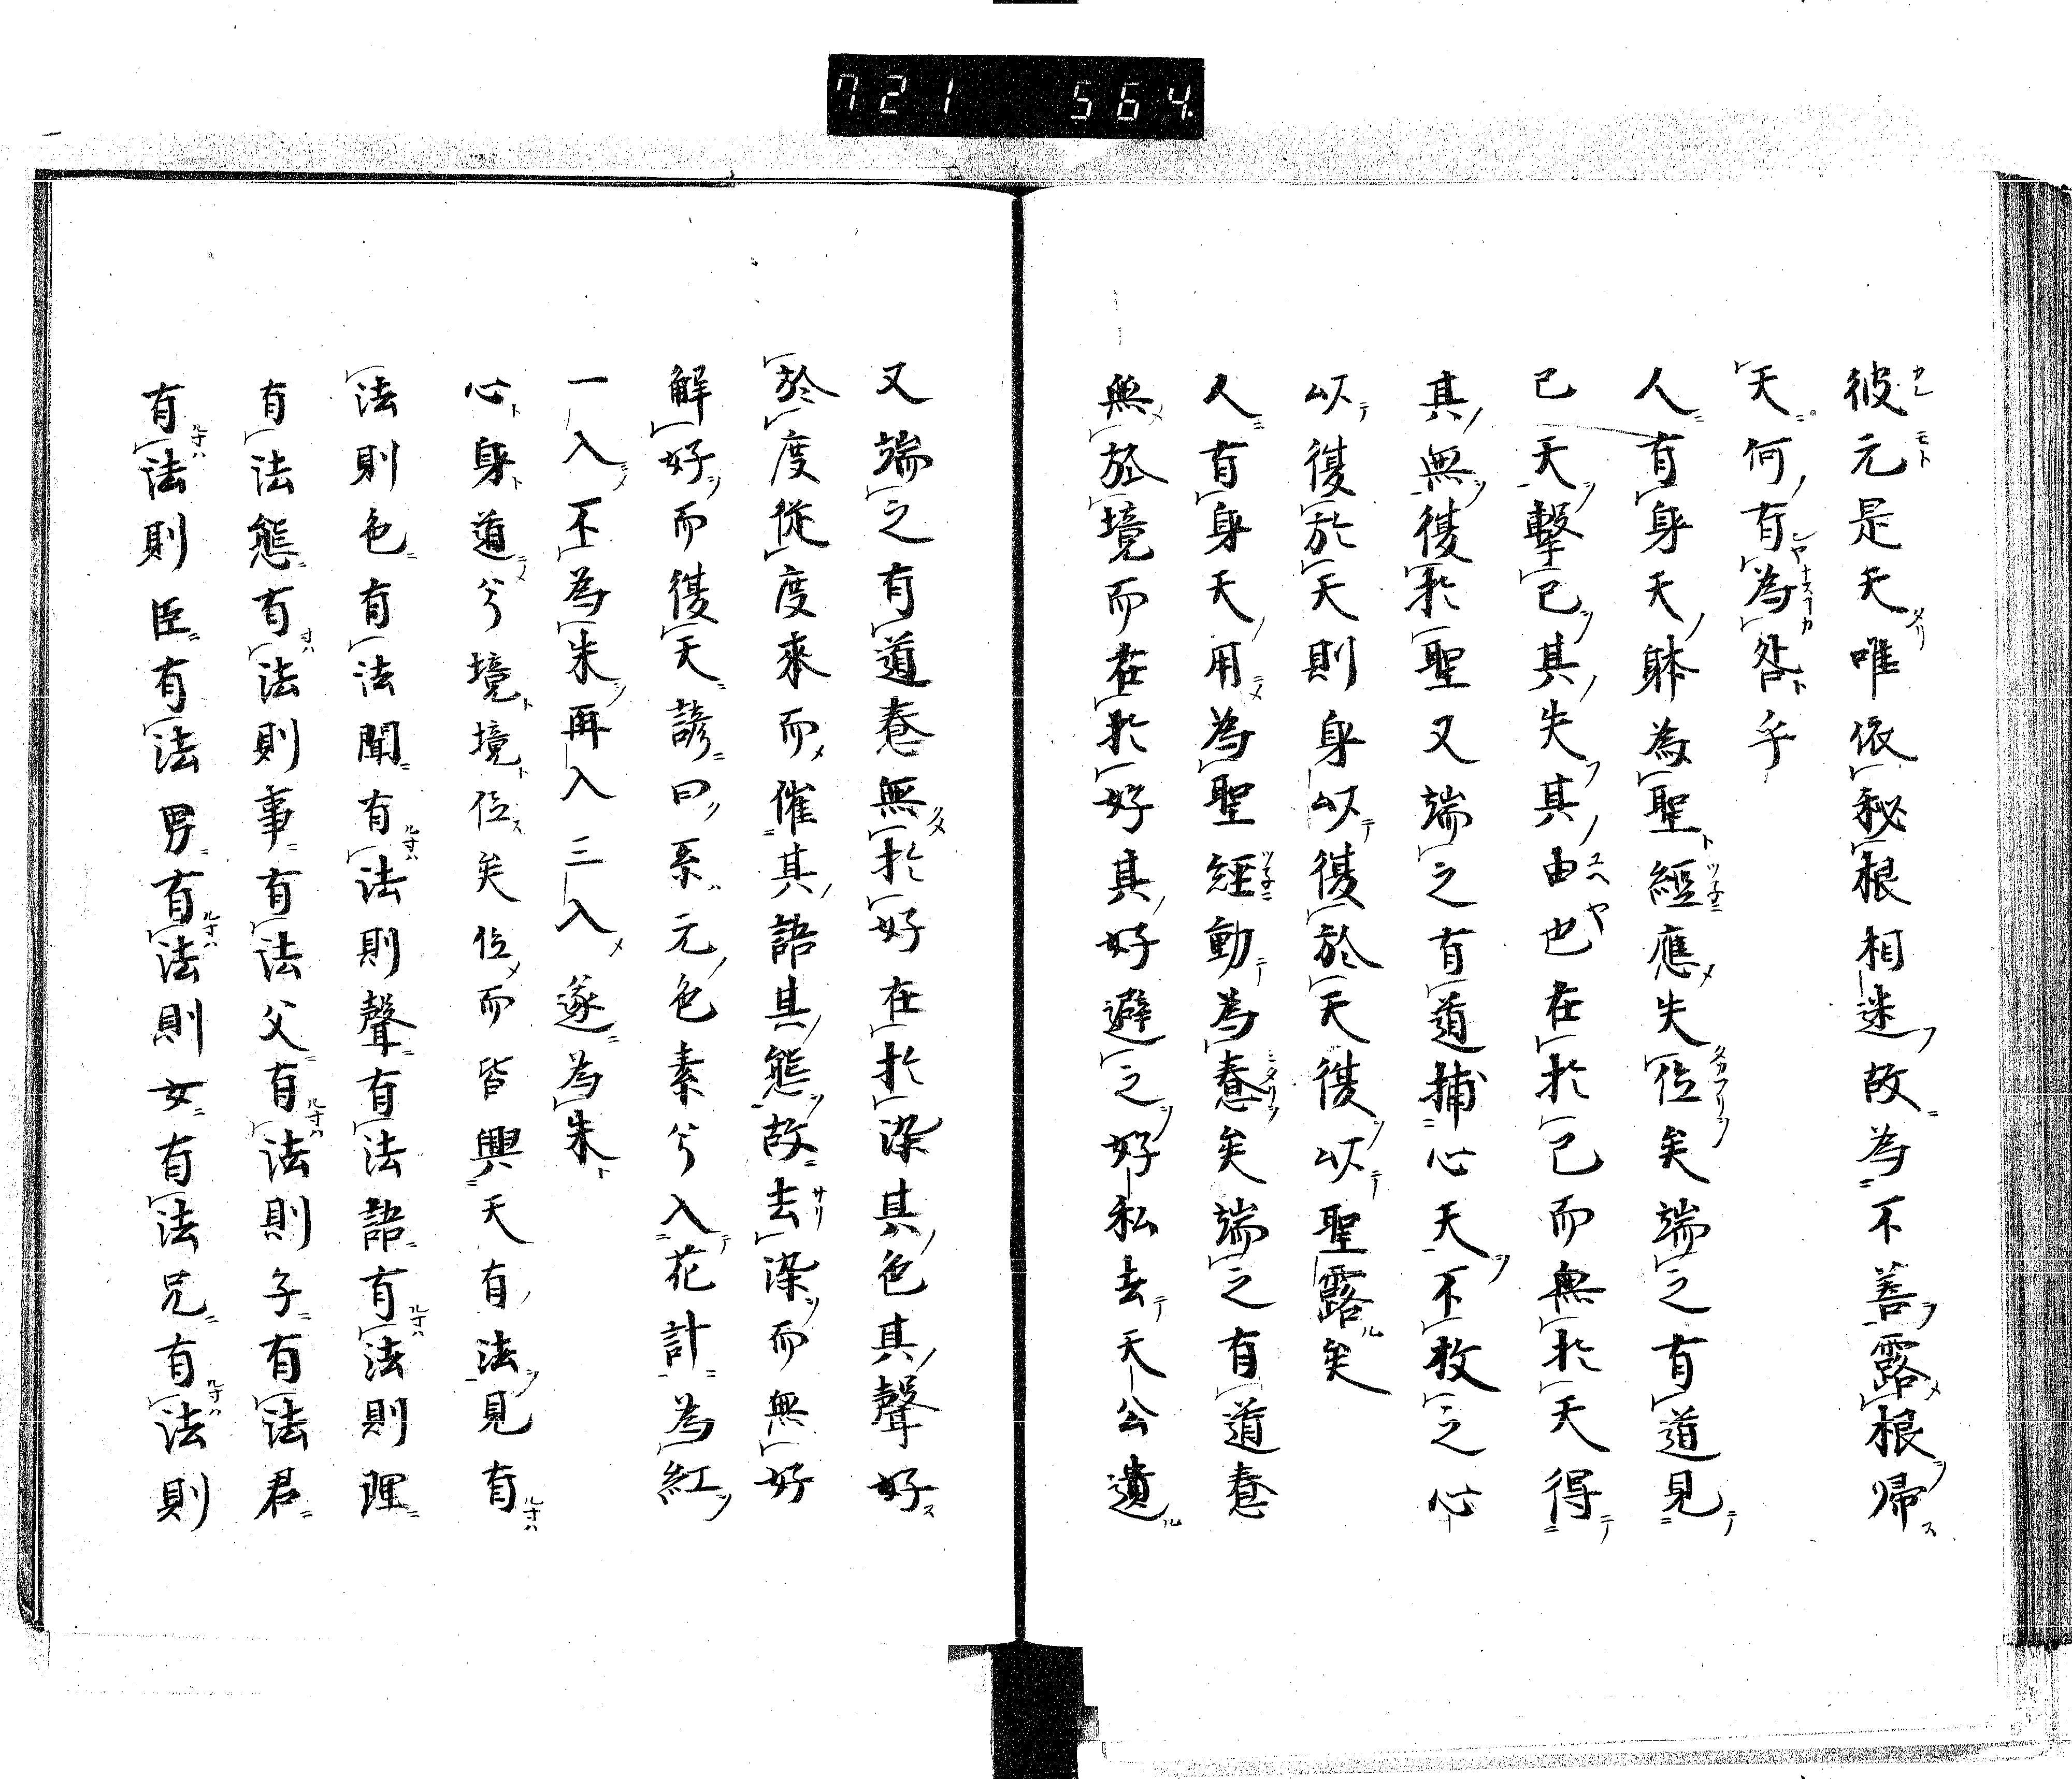 721 564
彼元是天唯依秘根相迷故為不善露根帰
天何有為咎乎
人有身天躰為聖經應失位矣端之有道見
己天擊己其失其由也在於己而無於天得
其無復於聖又端之有道捕心天不放之心
以復於天則身以復於天復以聖露矣
人有身天用為聖經動為惷矣端之有道惷
無於境而在於好其好避之好私去天公遺
又端之有道惷無於好在於染其色其聲好
於度從度來而催其語其態故去染而無好
解好而復天諺曰系元色素兮入花計為紅
一入不為朱再入三入遂為朱
心身道兮境境位矣位而皆興天有法見有
法則色有法聞有法則聲有法語有法則理
有法態有法則事有法父有法則子有法君
有法則臣有法男有法則女有法兄有法則